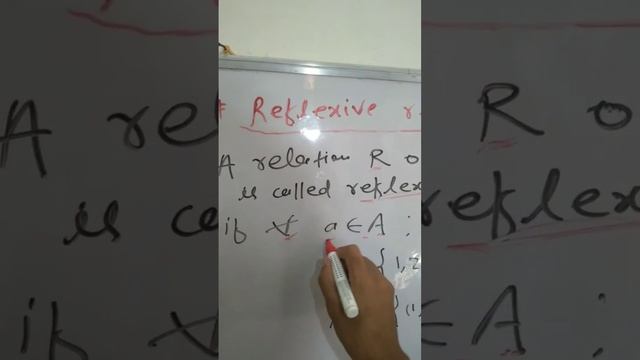 * Reflexive r
A relation R o
is called reflex
if ∀ a ∈ A :
{1, 2
{(1,